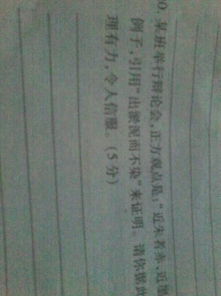 0. 某班举行辩论会,正方观点是:“近朱者赤,近墨
例子,引用“出淤泥而不染”来证明。请你据此
理有力,令人信服。(5分)